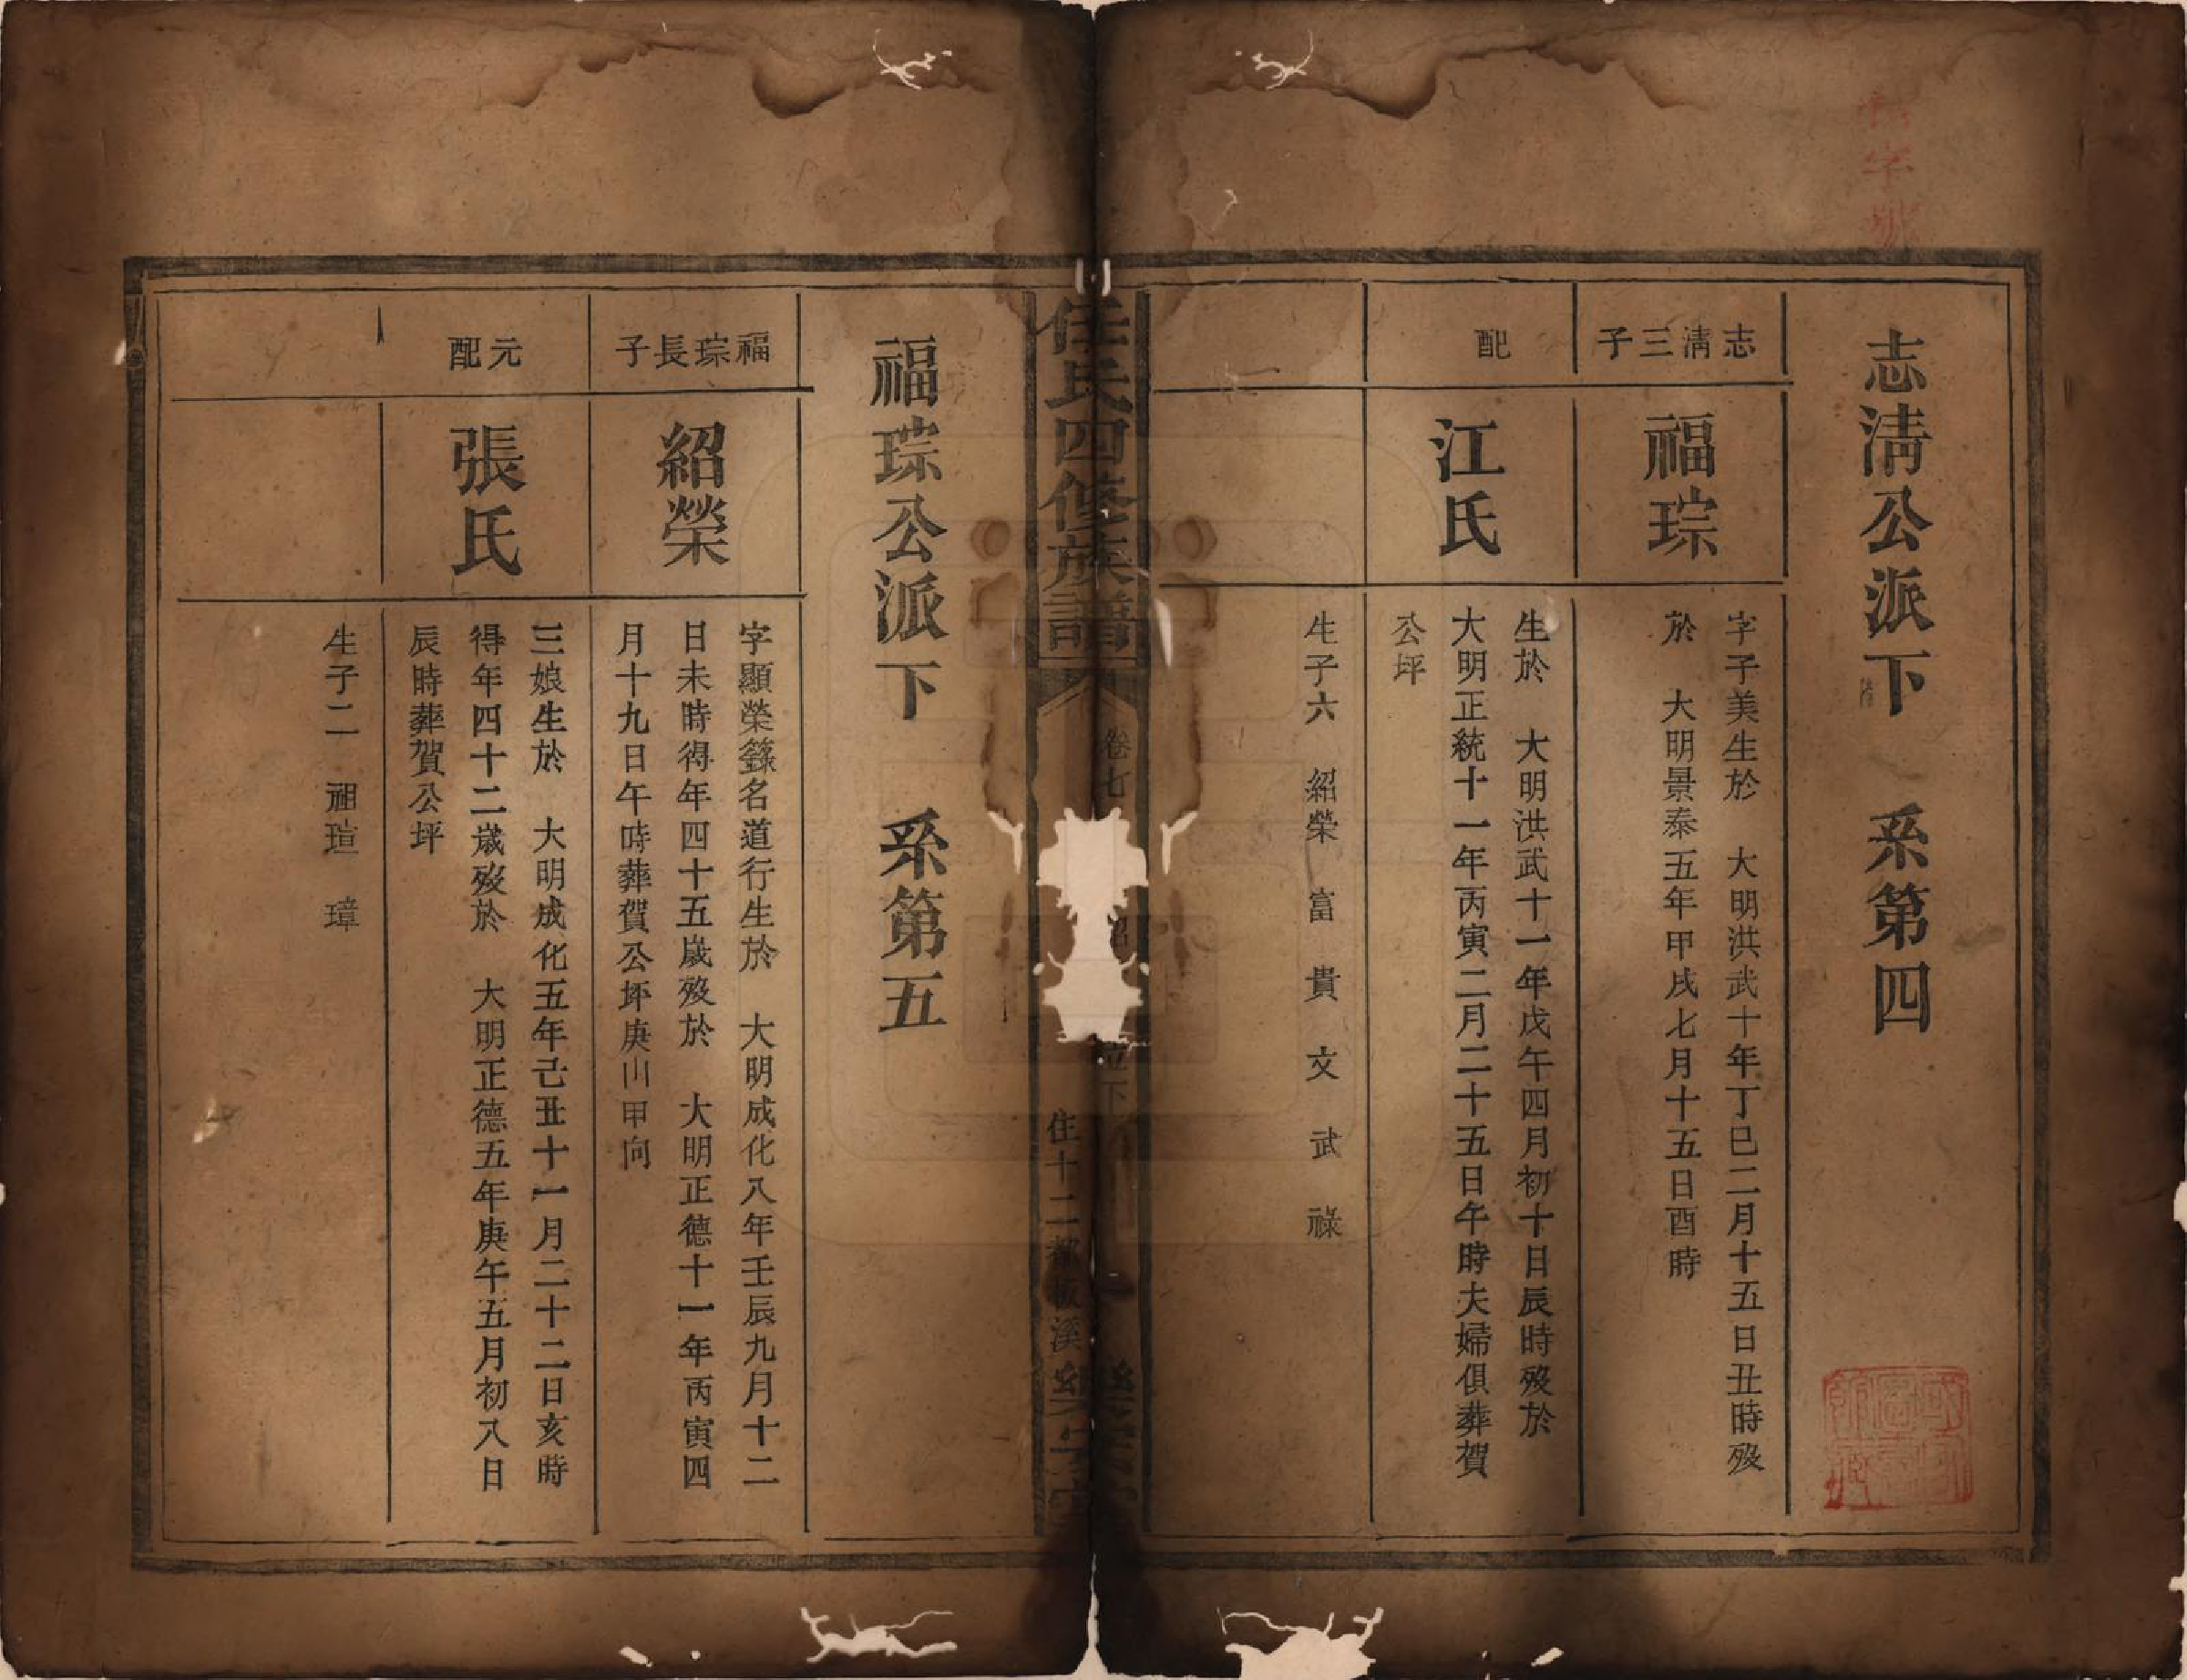 志淸公派下　系第四
志淸三子
福琮
字子美生於　大明洪武十年丁巳二月十五日丑時殁
於　大明景泰五年甲戌七月十五日酉時
配
江氏
生於　大明洪武十一年戊午四月初十日辰時殁於
大明正統十一年丙寅二月二十五日午時夫婦俱葬賀
公坪
生子六　紹榮　富　貴　文　武　祿
任氏四修族譜
卷七
位下
住十二都板溪
福琮公派下　系第五
福琮長子
紹榮
字顯榮籙名道行生於　大明成化八年壬辰九月十二
日未時得年四十五歲殁於　大明正德十一年丙寅四
月十九日午時葬賀公坪庚山甲向
元配
張氏
三娘生於　大明成化五年己丑十一月二十二日亥時
得年四十二歲殁於　大明正德五年庚午五月初八日
辰時葬賀公坪
生子二　祖瑄　璋